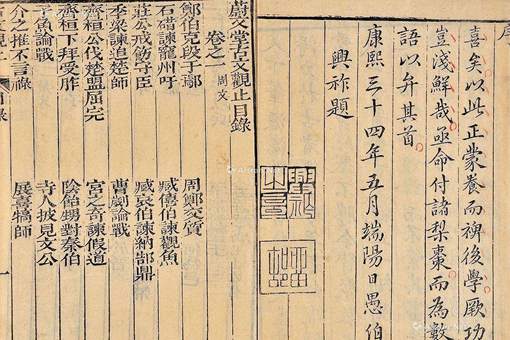 喜矣以此正蒙養而裨後學厥功
豈淺鮮哉亟命付諸梨棗而為數
語以弁其首
康熙三十四年五月端陽日愚伯
興祚題
蔚文堂古文觀止目錄
卷之一 周文
鄭伯克段于鄢 周鄭交質
石碏諫寵州吁 臧僖伯諫觀魚
莊公戒飭守臣 臧哀伯諫納郜鼎
季梁諫追楚師 曹劌論戰
齊桓公伐楚盟屈完 宮之奇諫假道
齊桓下拜受胙 陰飴甥對秦伯
子魚論戰 寺人披見文公
介之推不言祿 展喜犒師